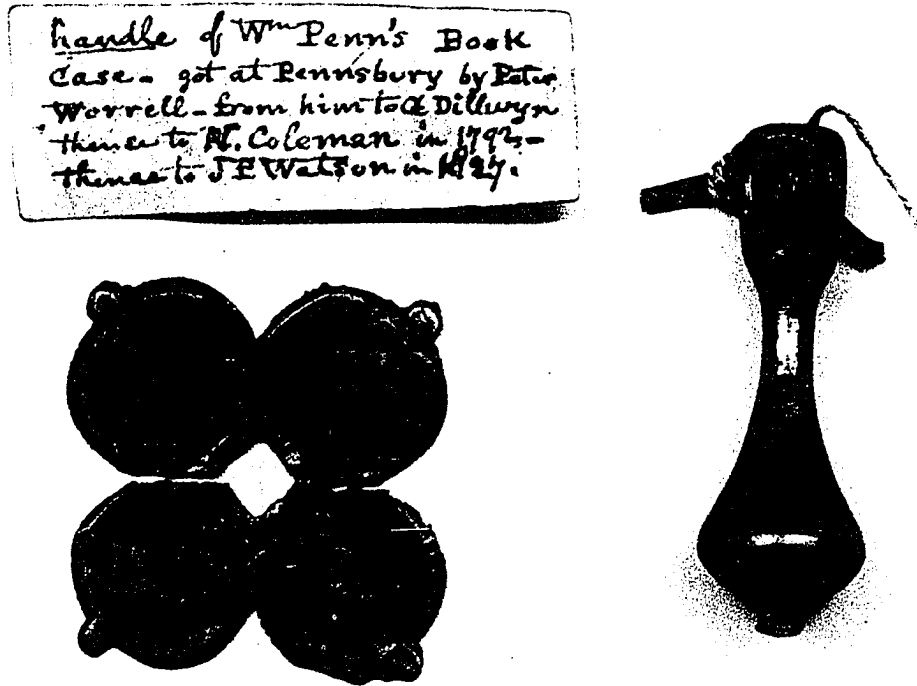 handle of Wm Penn's Book
Case - got at Pennsbury by Peter
Worrell - from him to G Dillwyn
thence to N. Coleman in 1792 -
thence to J F Watson in 1827.